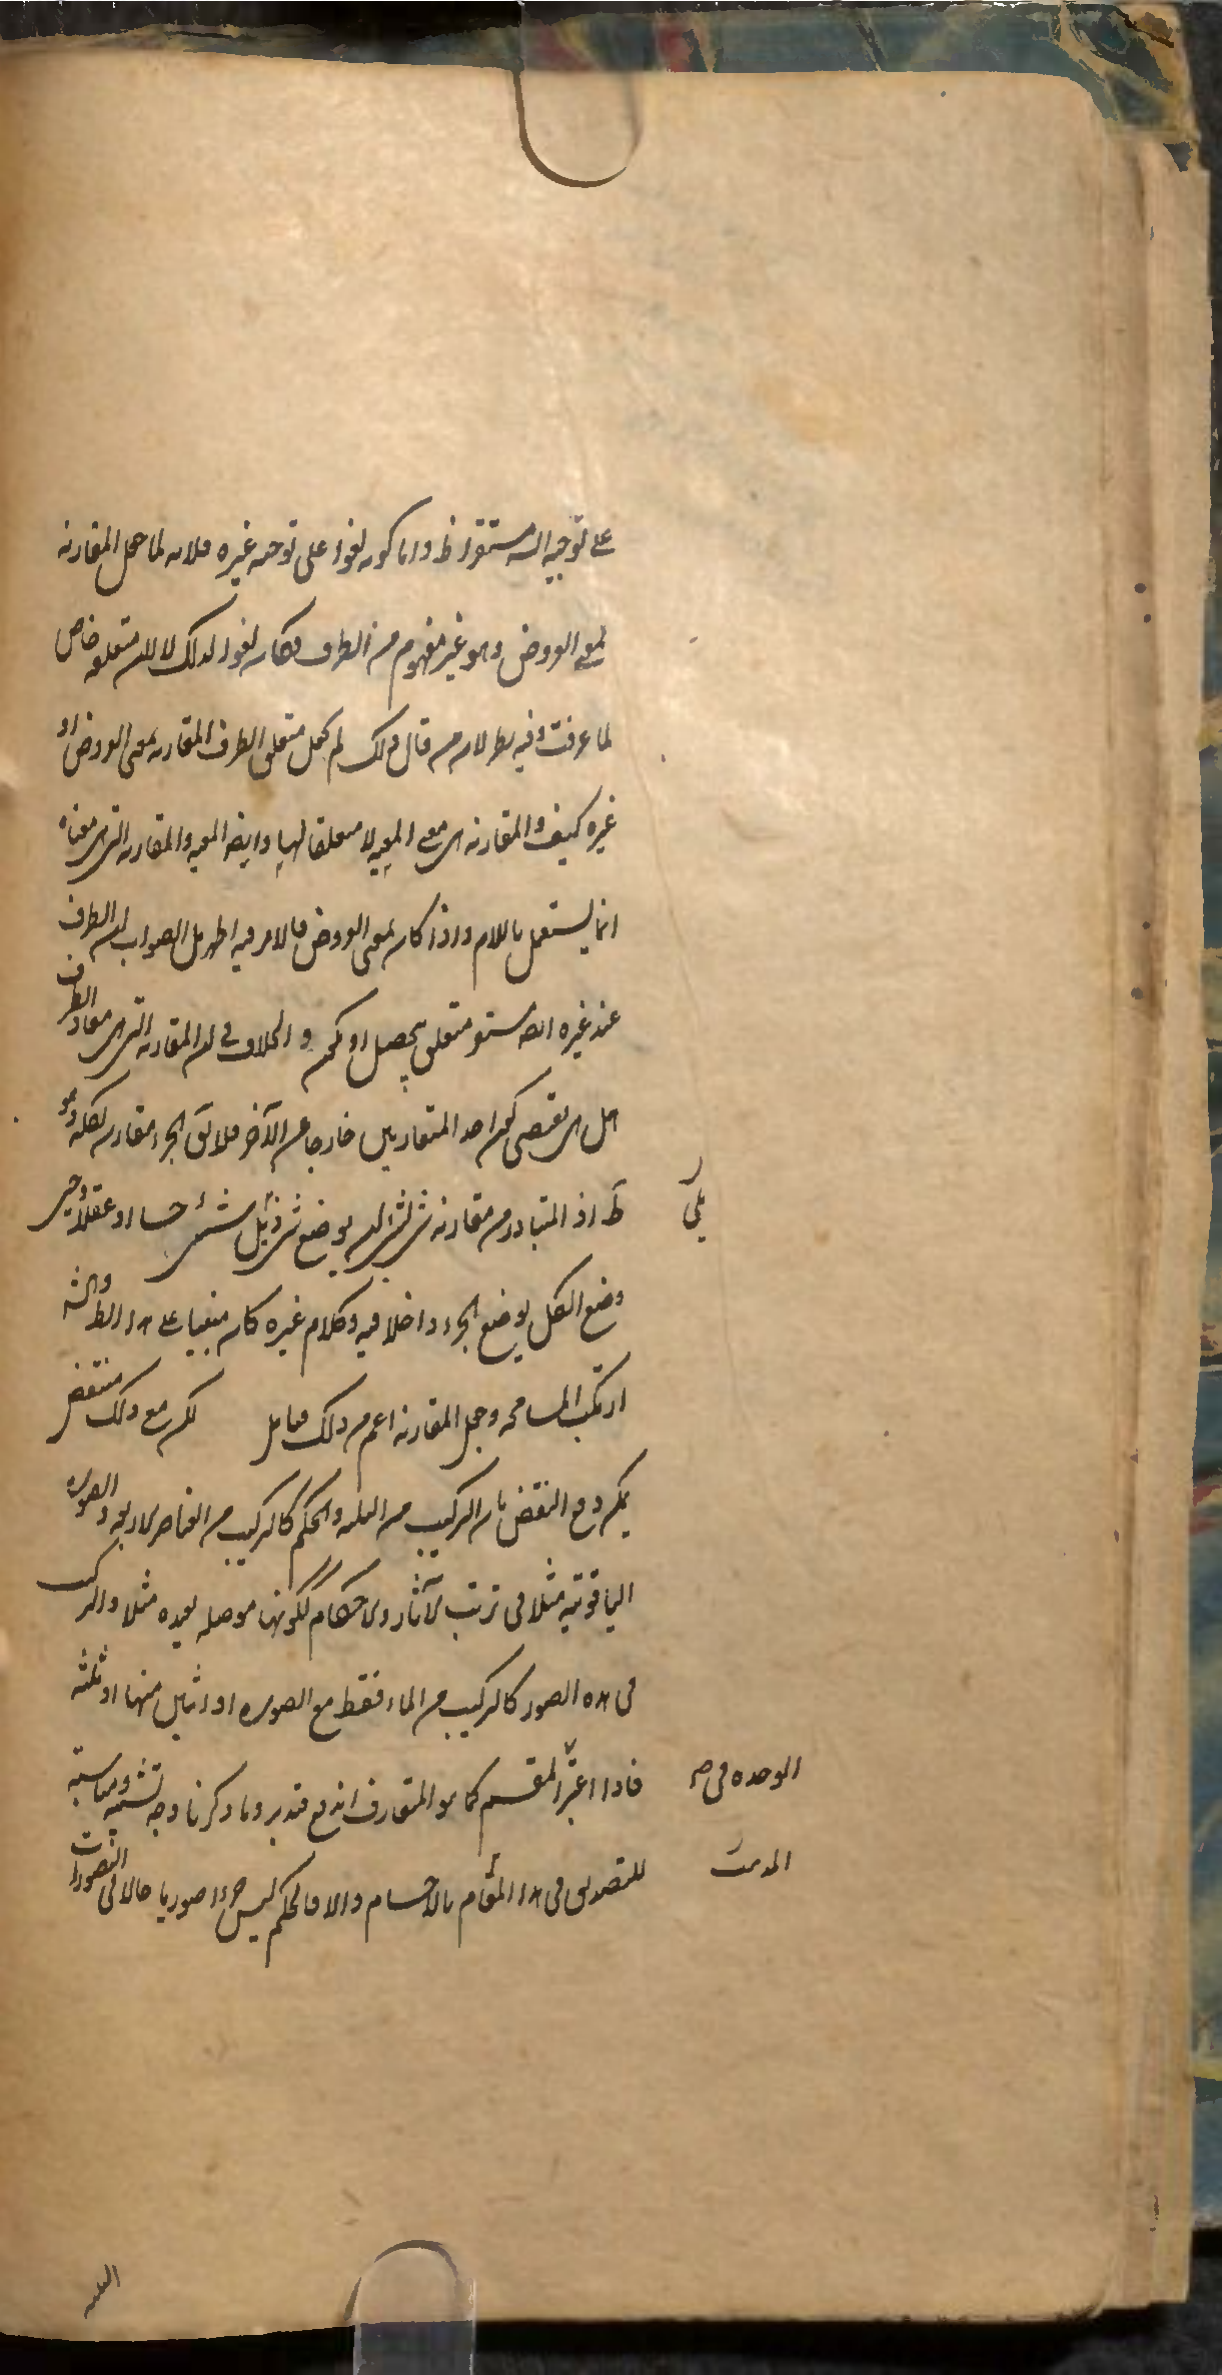 على توجيه الشه مستقرا ظ واما كونه لغوا على توجيه غيره فلانه لما حمل المقارنة
بمعنى العروض وهو غير مفهوم من الظرف فكان لغوا لذلك لا لان متعلقه خاص
لما عرفت وفيه نظر لان من قال ذلك لم يجعل متعلق الظرف المقارنة بمعنى العروض او
غيره كيف والمقارنة هي معنى المعية لا متعلقا لها وايضا المعية والمقارنة التي هي معناه
انما يستعمل باللام واذا كان بمعنى العروض فالامر فيه اظهر بل الصواب ان الظرف
عند غيره ايضا مستقر متعلق بحصل او يحكم والخلاف في ان المقارنة التي هي مفاد الظرف
هل هي يقتضي كون احد المتقارنين خارجا عن الآخر فلا يق الجزء مقارن لكله وهو
ظ اذ المتبادر من مقارنة شئ لشئ ان يوضع شئ ذيل شئ حسا او عقلا وحين
وضع الكل يوضع الجزء داخلا فيه وكلام غيره كان مبنيا على هذا الظ والشه
ارتكب المسامحة وجعل المقارنة اعم من ذلك فتامل لكن مع ذلك منتقض
يمكن دفع النقض بان التركيب من الثلثة والحكم كالتركيب من العناصر الاربعة والصورة
الياقوتية مثلا في ترتب الآثار والاحكام ككونها موصلة بعيدة مثلا والتركيب
في هذه الصور كالتركيب من الماء فقط مع الصورة او اثنين منها او ثلثة
الوحدة في ص فاذا اعتبر المقسم كما هو المتعارف اندفع فتدبر وما ذكرنا وجه تشبيه ومناسبة
للتصديق في هذا المقام بالاجسام والا فالحكم ليس جزءا صوريا حالا في التصورات